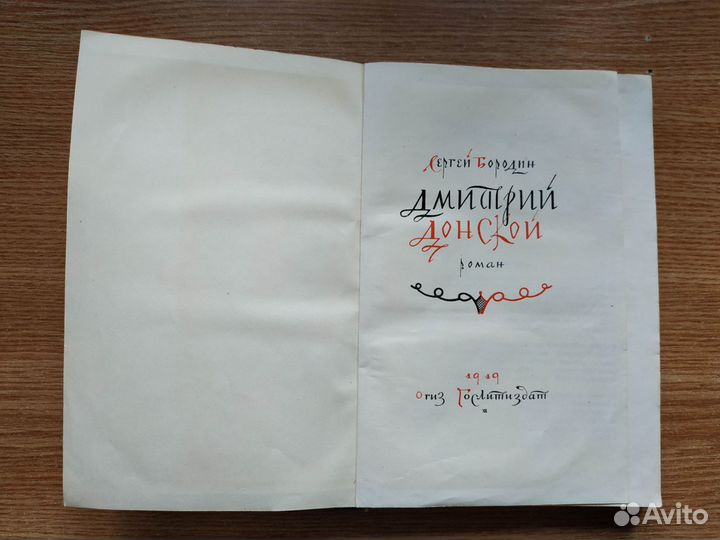 Сергей Бородин
Дмитрий
Донской
роман
1949
Огиз Гослитиздат
м
Avito